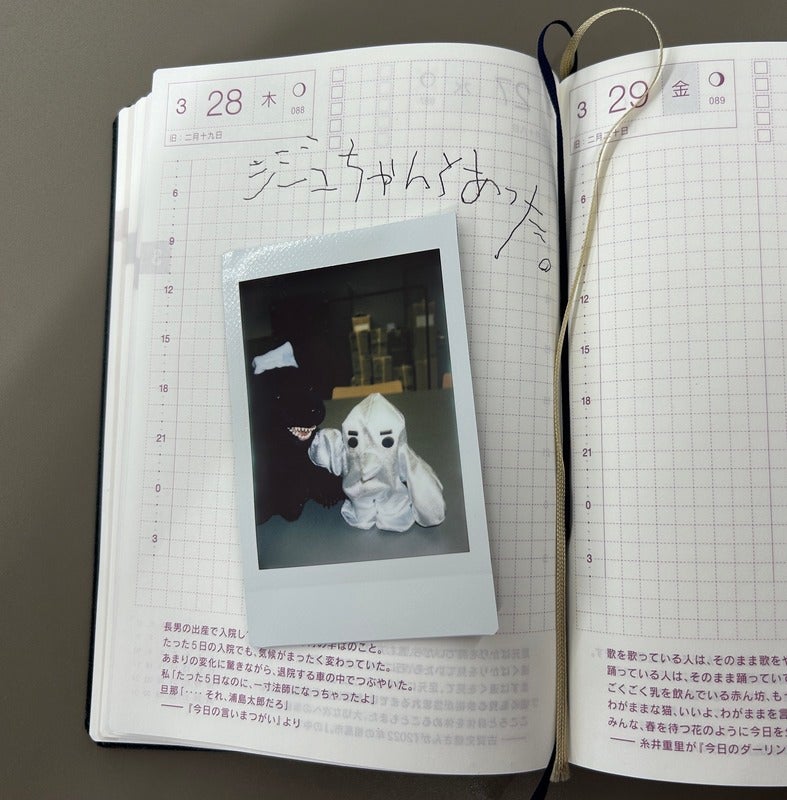 3 28 木
088
旧：二月十九日
ジジュちゃんとあった。
6
9
12
15
18
21
0
3
長男の出産で入院し
のこと。
たった５日の入院でも、気候がまったく変わっていた。
あまりの変化に驚きながら、退院する車の中でつぶやいた。
私「たった５日なのに、一寸法師になっちゃったよ」
旦那「‥‥それ、浦島太郎だろ」
——『今日の言いまつがい』より
3 29 金
089
旧：二月二十日
12
15
18
21
0
3
歌を歌っている人は、そのまま歌を
踊っている人は、そのまま踊ってい
ごくごく乳を飲んでいる赤ん坊、も
わがままな猫、いいよ、わがままを
みんな、春を待つ花のように今日を
——糸井重里が『今日のダーリン